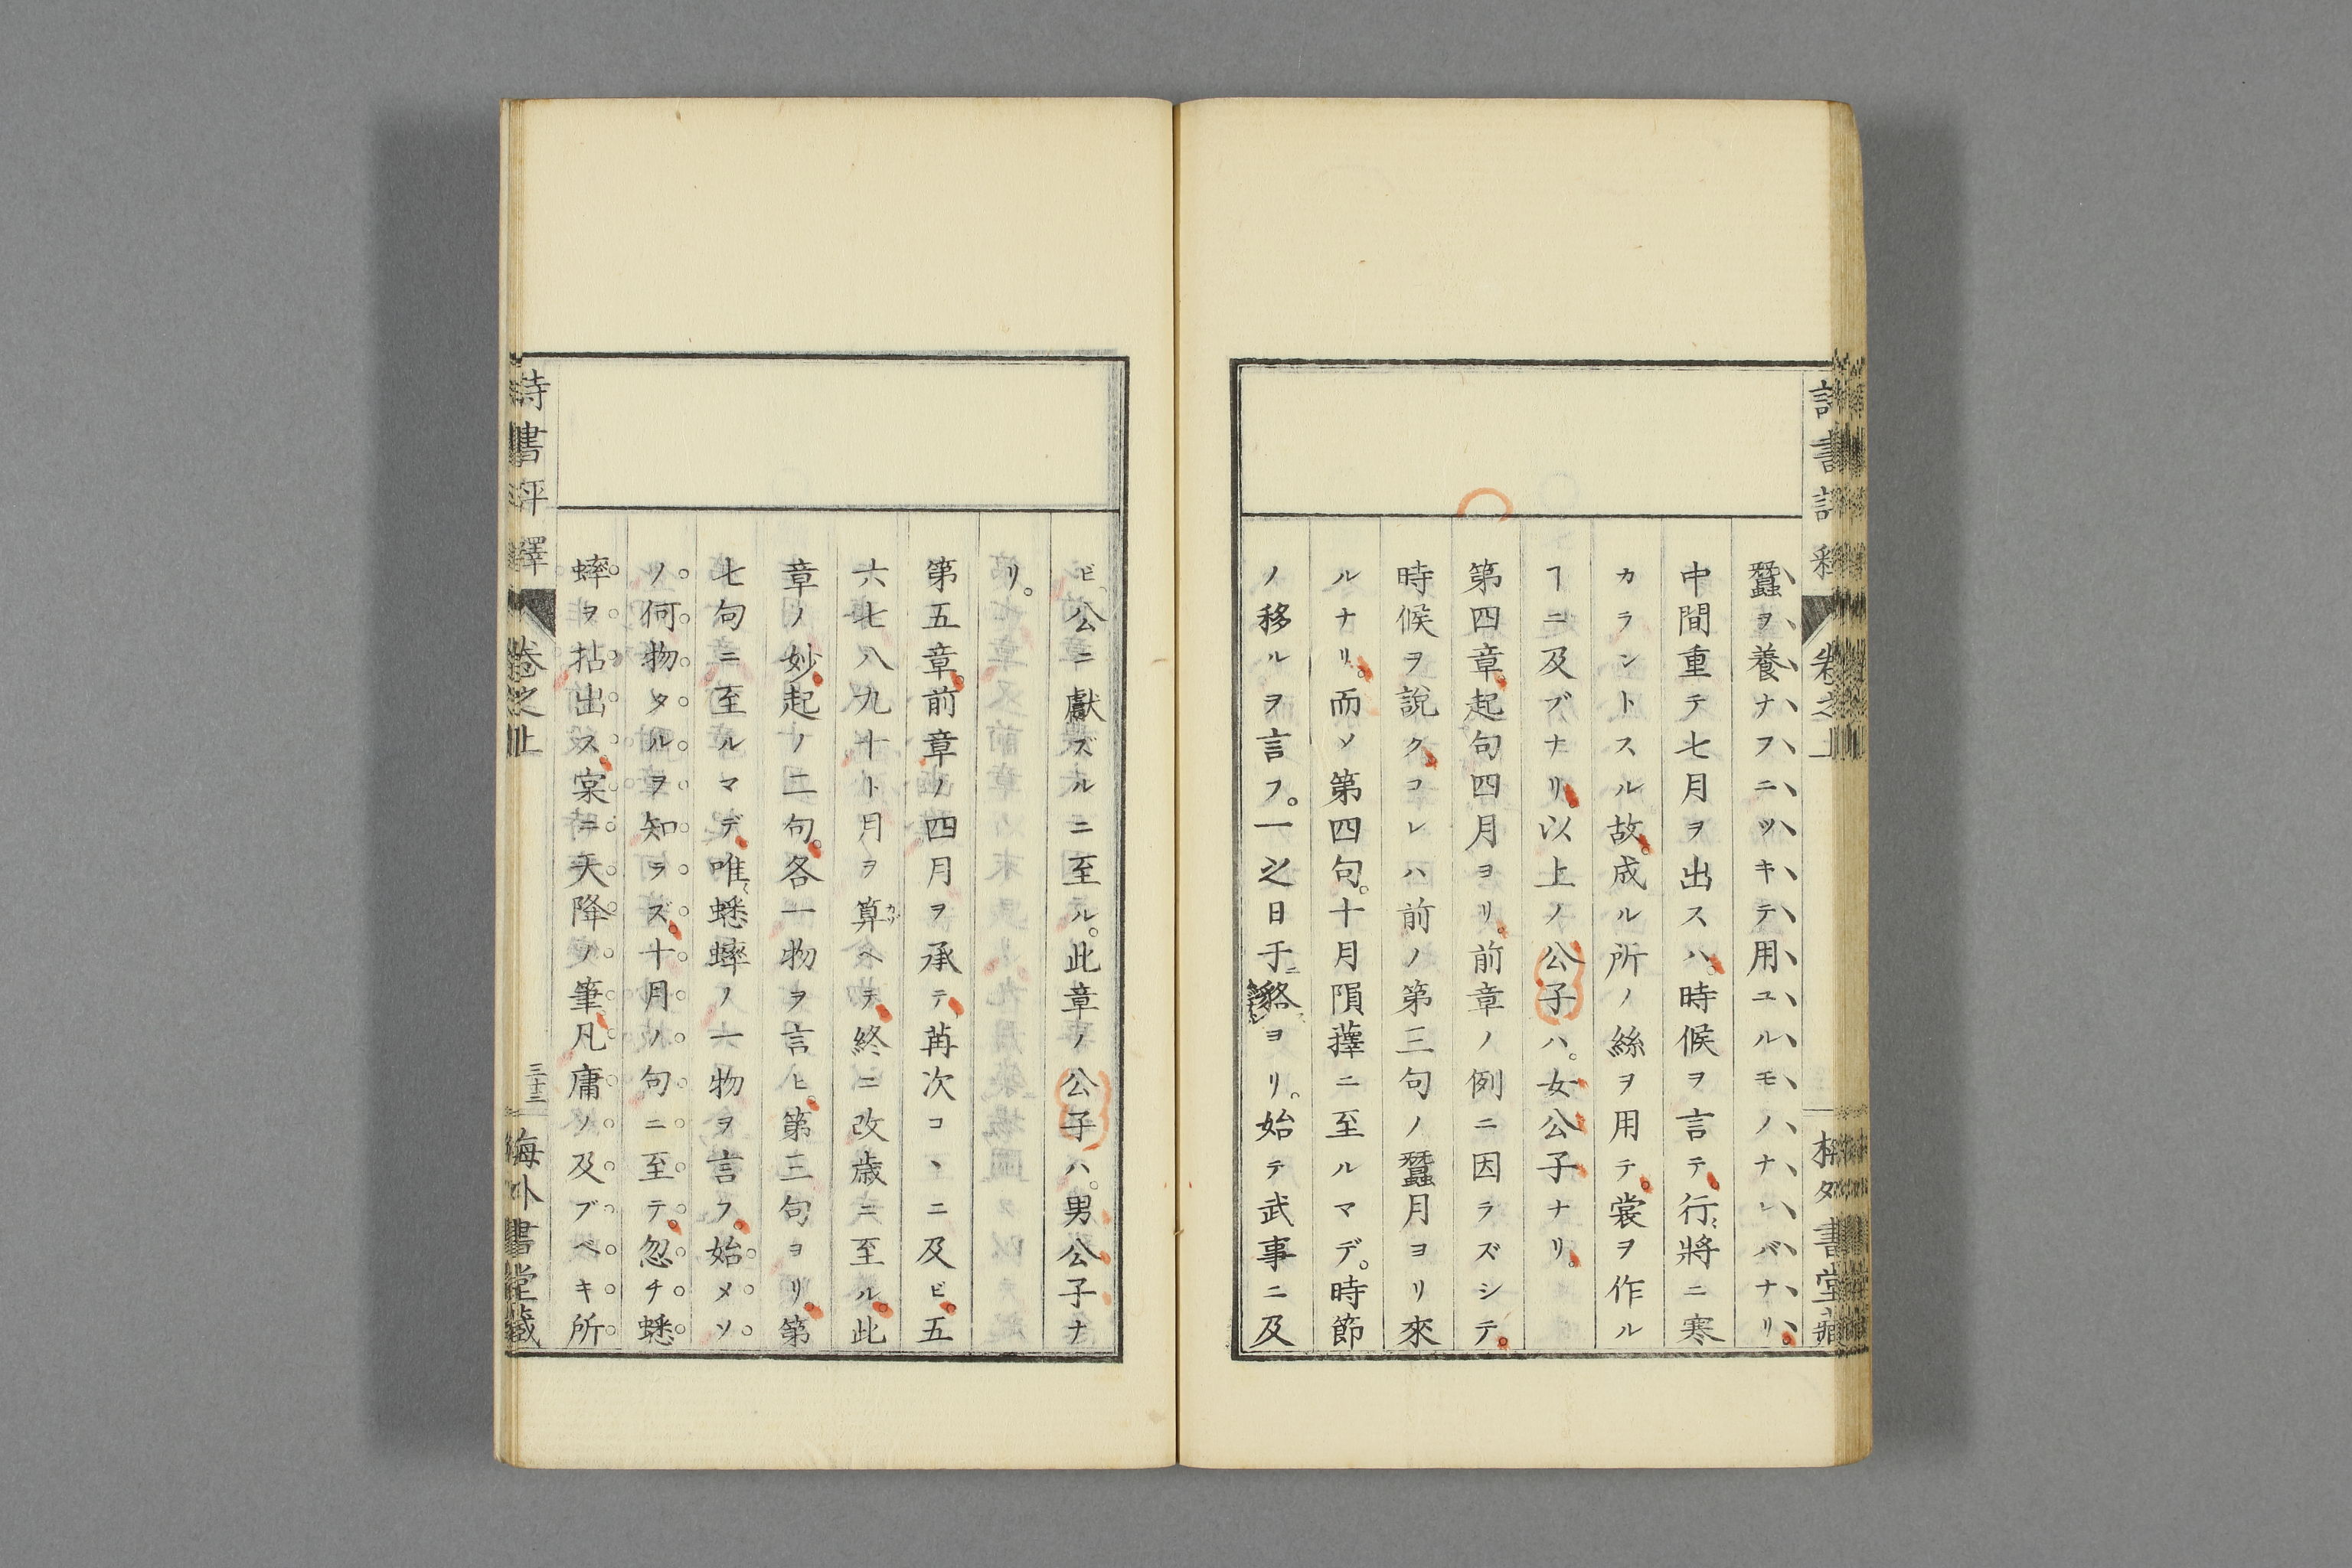 蠶ヲ養ナフニツキテ用ユルモノナレバナリ
中間重テ七月ヲ出スハ。時候ヲ言テ。行〻將ニ寒
カラントスル故。成ル所ノ絲ヲ用テ。裳ヲ作ル
ヿニ及ブナリ。以上ノ公子ハ。女公子ナリ。
第四章。起句四月ヨリ。前章ノ例ニ因ラズシテ。
時候ヲ說ク。コレハ前ノ第三句ノ蠶月ヨリ來
ルナリ。而ソ第四句。十月隕蘀ニ至ルマデ。時節
ノ移ルヲ言フ。一之日于貉ヨリ。始テ武事ニ及
ビ。公ニ獻ズルニ至ル。此章ノ公子ハ。男公子ナ
リ。
第五章。前章ノ四月ヲ承テ。苒次コヽニ及ビ。五
六七八九十ト月ヲ算ヘテ。終ニ改歳ニ至ル。此
章ノ妙。起ノ二句。各一物ヲ言ヒ。第三句ヨリ。第
七句ニ至ルマデ。唯〻蟋蟀ノ一物ヲ言フ。始メソ
ノ何物タルヲ知ラズ。十月ノ句ニ至テ。忽チ蟋
蟀ヲ拈出ス。寔ニ天降ノ筆。凡庸ノ及ブベキ所
詩書評釋
卷之上
三十三
梅外書堂藏